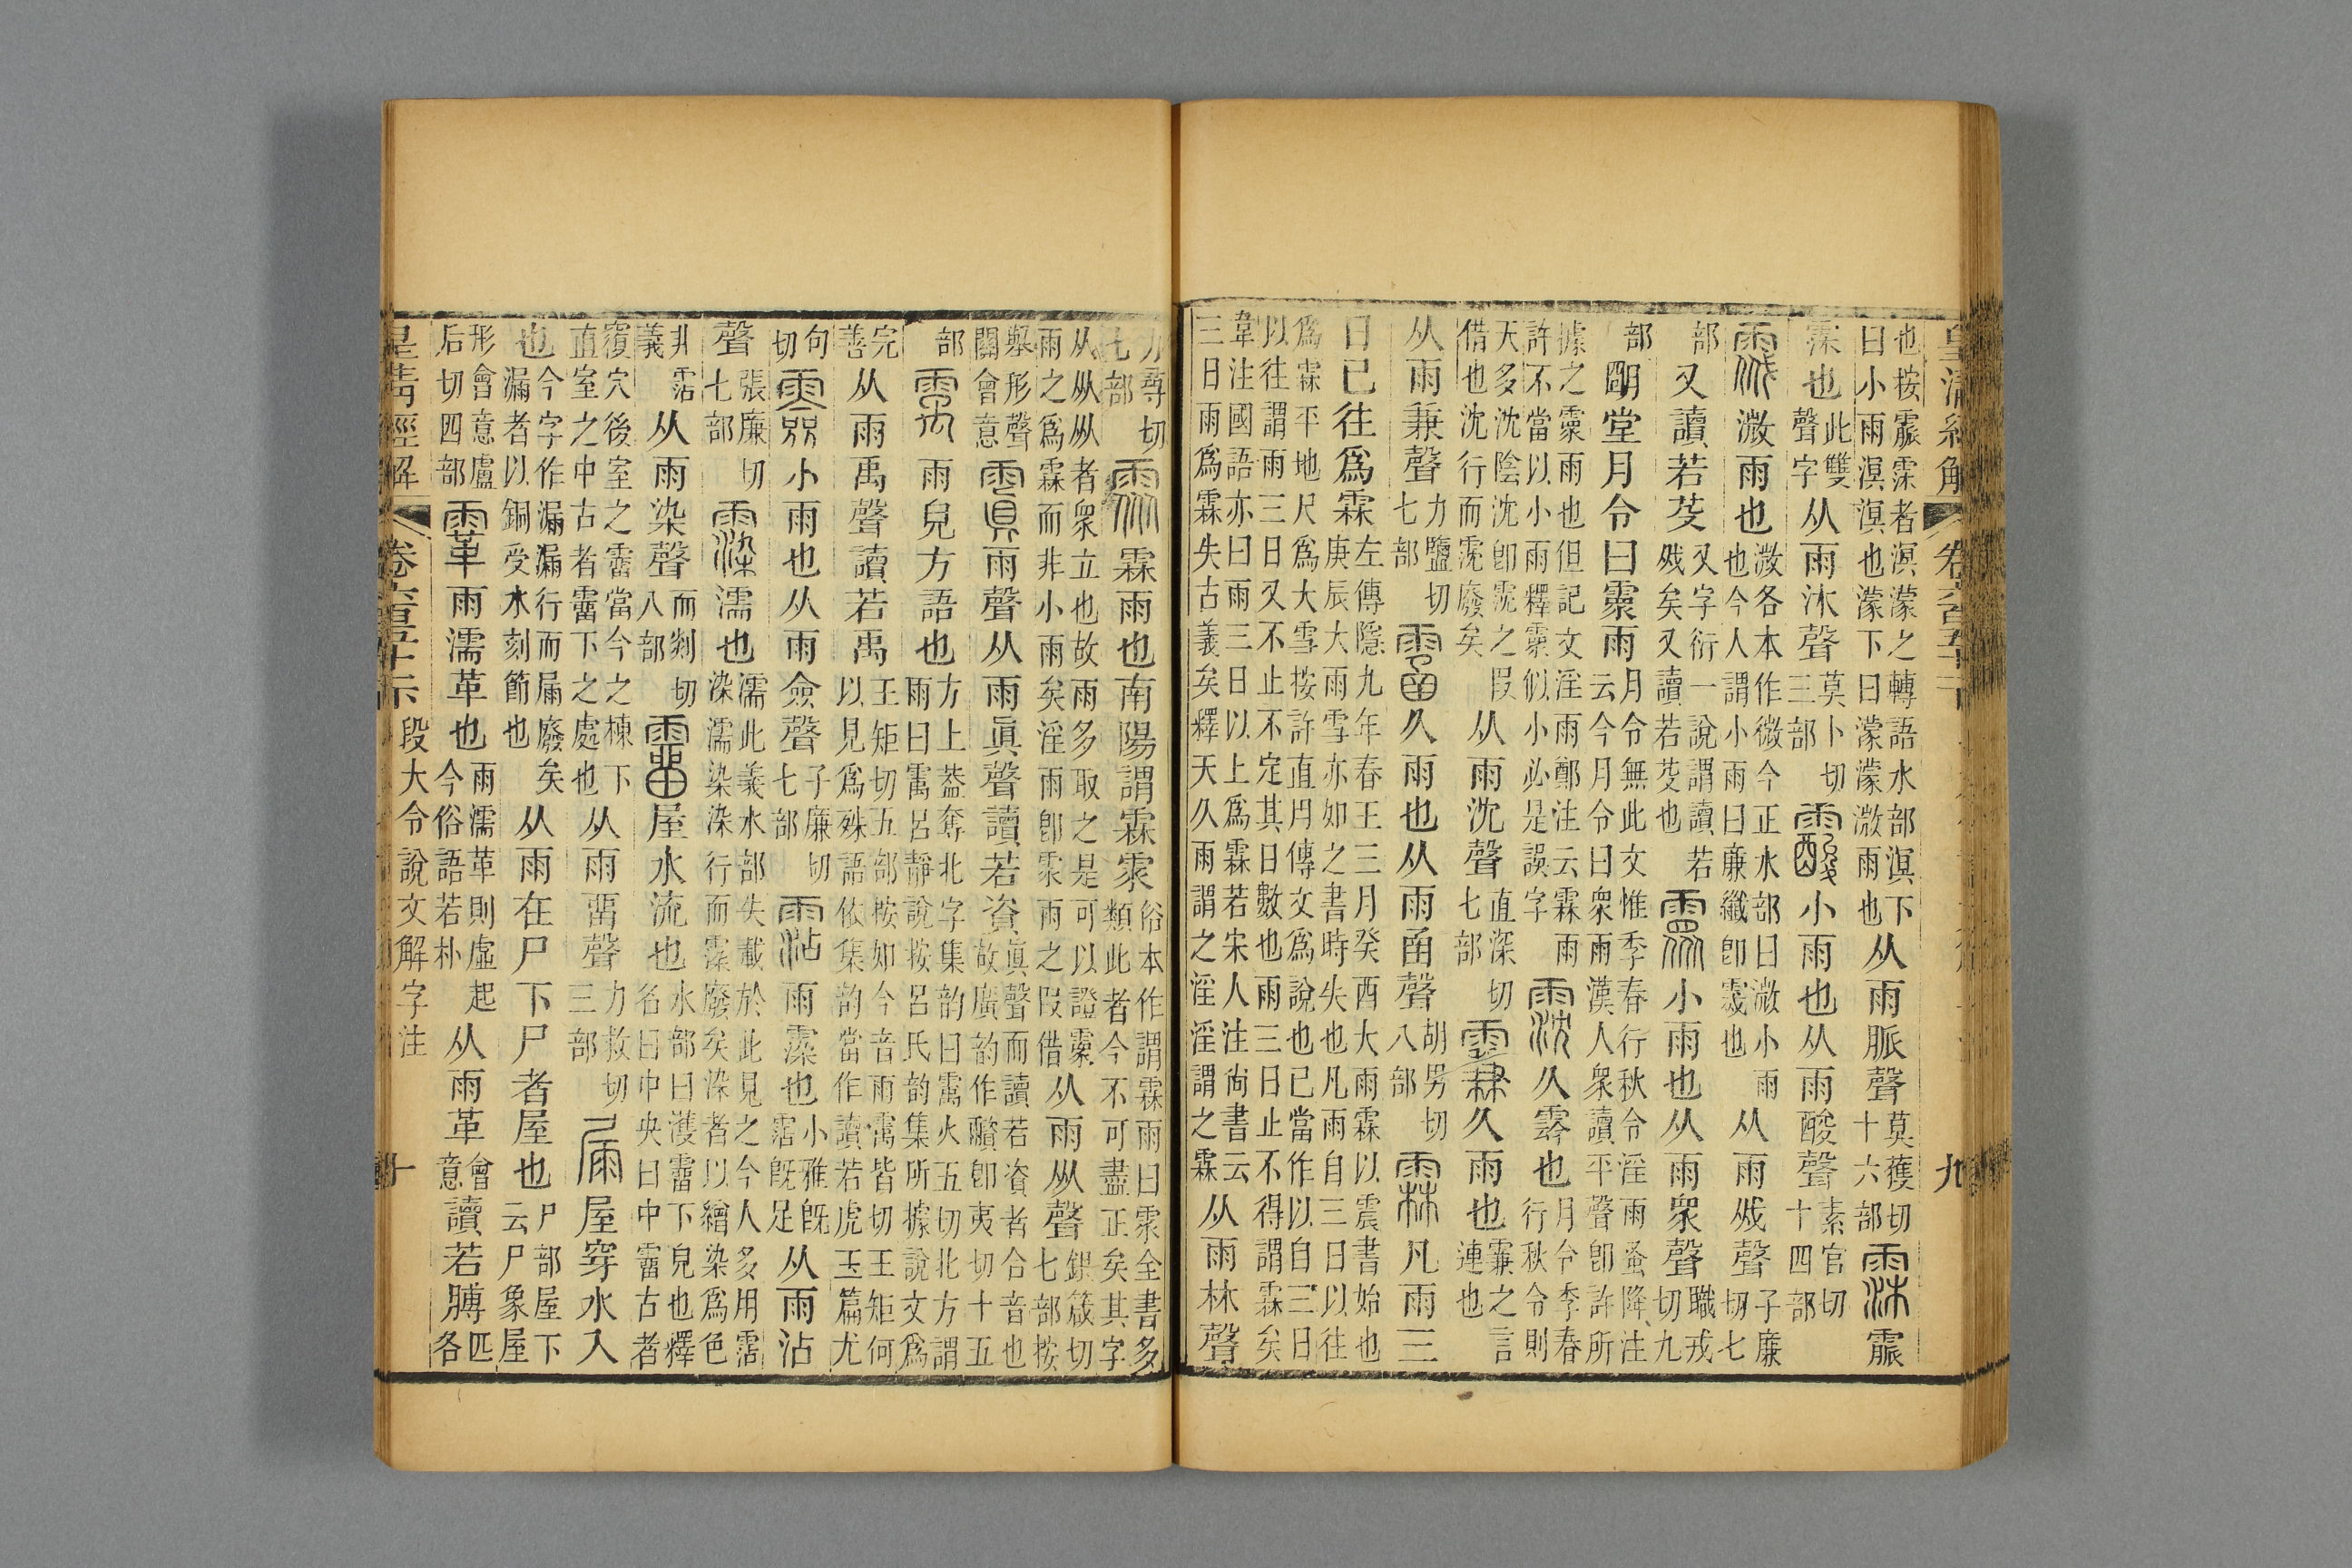 皇清經解 卷六百五十一下 九
也按霢霂者溟濛之轉語水部溟下曰小雨溟溟也濛下曰濛濛溦雨也从雨脈聲莫獲切十六部霂霢
霂也此雙聲字从雨沐聲莫卜切三部䨘小雨也从雨酸聲素官切十四部
䨙溦雨也溦各本作微今正水部曰溦小雨也今人謂小雨曰廉纖卽䨙也从雨㦰聲子廉切七
部又讀若芟又字衍一說謂讀若㦰矣又讀若芟也䨺小雨也从雨眾聲職戎切九
部明堂月令曰䨺雨月令無此文惟季春行秋令淫雨蚤降注云今月令曰眾雨漢人眾讀平聲卽許所
據之䨺雨也但記文淫雨鄭注云霖雨許不當以小雨釋䨺似小必是誤字霃久霒也月令季春行秋令則
天多沈陰沈卽霃之叚借也沈行而霃廢矣从雨沈聲直深切七部䨬久雨也䨬之言連也
从雨兼聲力鹽切七部䨡久雨也从雨圅聲胡男切八部霖凡雨三
日已往爲霖左傳隱九年春王三月癸酉大雨霖以震書始也庚辰大雨雪亦如之書時失也凡雨自三日以往
爲霖平地尺爲大雪按許直用傳文爲說也已當作以自三日以往謂雨三日又不止不定其日數也雨三日止不得謂霖矣
韋注國語亦曰雨三日以上爲霖若宋人注尚書云三日雨爲霖失古義矣釋天久雨謂之淫淫謂之霖从雨林聲
力尋切七部䨯霖雨也南陽謂霖䨯俗本作謂霖雨曰䨯全書多類此者今不可盡正矣其字
从㐺㐺者眾立也故雨多取之是可以證䨺雨之爲霖而非小雨矣淫雨卽䨯雨之叚借从雨㐺聲銀箴切七部按
舉形聲關會意䨲雨聲从雨眞聲讀若資眞聲而讀若資者合音也故廣韵作䨴卽夷切十五
部䨞雨皃方語也方上葢奪北字集韵曰䨞火五切北方謂雨曰䨞呂靜說按呂氏韵集所據說文爲
完善从雨禹聲讀若禹王矩切五部按如今音雨䨞皆切王矩何以見爲殊語依集韵當作讀若虎玉篇尤
句切䨛小雨也从雨僉聲子廉切七部霑雨䨟也小雅旣霑旣足从雨沾
聲張廉切七部䨟濡也濡此義水部失載於此見之今人多用霑染濡染染行而䨟廢矣染者以繒染爲色
非霑義从雨染聲而剡切八部霤屋水流也水部曰濩霤下皃也釋名曰中央曰中霤古者
覆穴後室之霤當今之棟下直室之中古者霤下之處也从雨畱聲力救切三部屚屋穿水入
也今字作漏漏行而屚廢矣漏者以銅受水刻節也从雨在尸下尸者屋也尸部屋下云尸象屋
形會意盧后切四部䨣雨濡革也雨濡革則虛起今俗語若朴从雨革會意讀若膊匹各
皇清經解 卷六百五十一下 段大令說文解字注 十